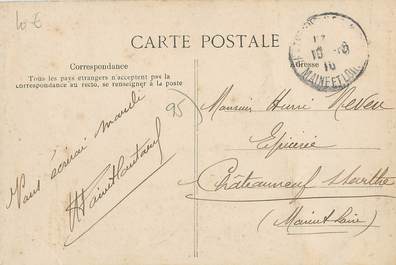 10 €
CARTE POSTALE
Correspondance
Tous les pays étrangers n'acceptent pas la
correspondance au recto, se renseigner à la poste
Adresse
17
10
MAINE-ET-LOIRE
95)
Monsieur Henri Neveu
Epicerie
Châteauneuf s/Sarthe
(Maine et Loire)
Vous